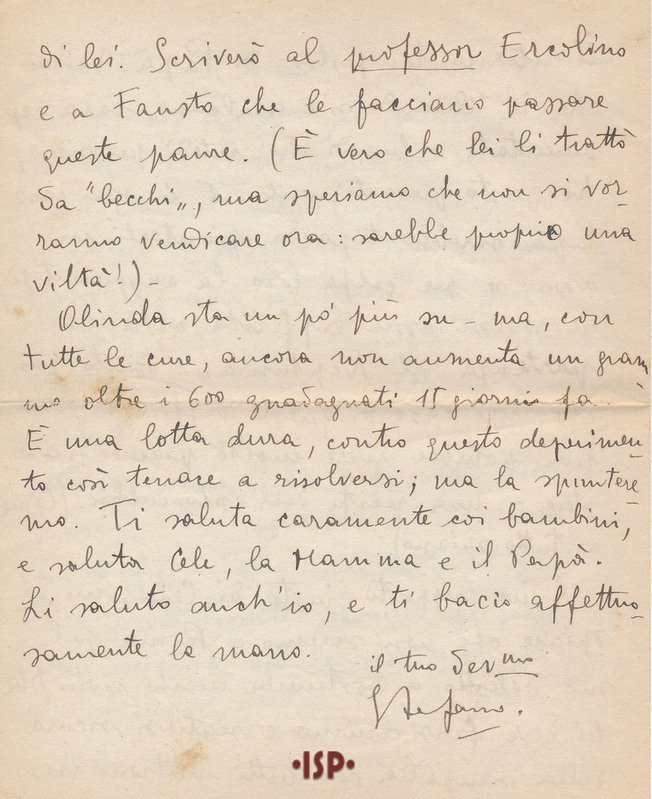 di lei. Scriverò al professor Ercolino
e a Fausto che le facciano passare
queste paure. (È vero che lei li trattò
da "becchi„, ma speriamo che non si vor-
ranno vendicare ora: sarebbe proprio una
viltà!)-
Olinda sta un pò più su - ma, con
tutte le cure, ancora non aumenta un gram
mo oltre i 600 guadagnati 15 giorni fa.
È una lotta dura, contro questo deperimen-
to così tenace a risolversi; ma la spuntere-
mo. Ti saluta caramente coi bambini,
e saluta Cele, la Mamma e il Papà.
Li saluto anch'io, e ti bacio affettuo-
samente la mano.
il tuo dev mo
Stefano.
•ISP•